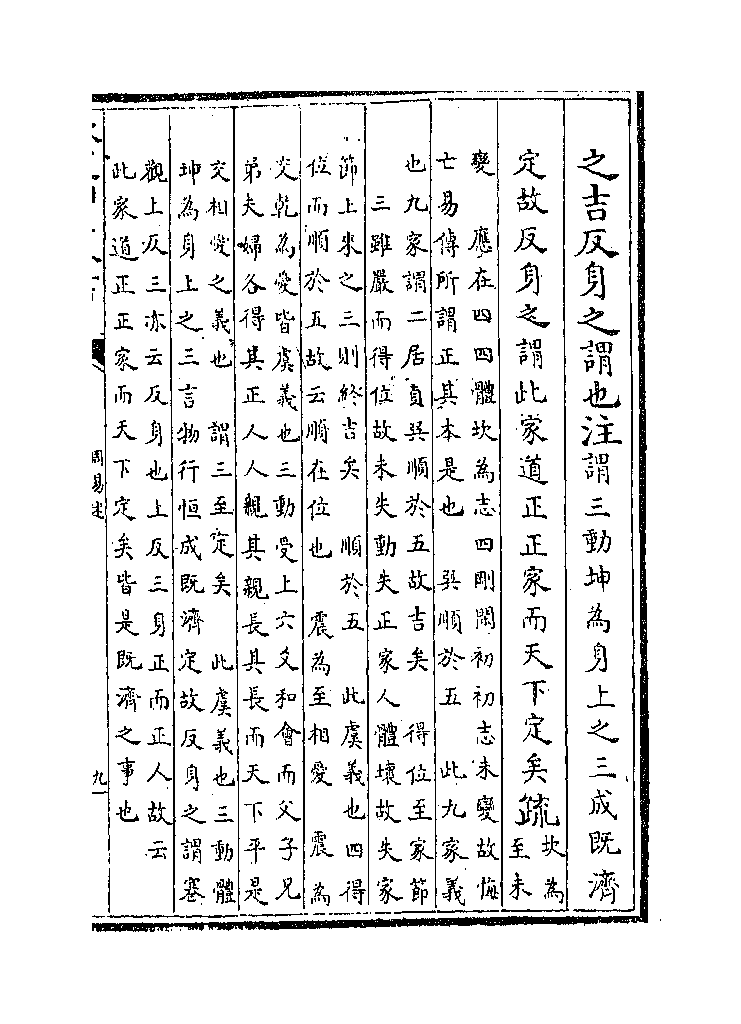 之吉反身之謂也注謂三動坤為身上之三成既濟
定故反身之謂此家道正正家而天下定矣疏
坎為
至未
變　應在四四體坎為志四剛閑初初志未變故悔
亡易傳所謂正其本是也　巽順於五　此九家義
也九家謂二居貞巽順於五故吉矣　得位至家節
三雖嚴而得位故未失動失正家人體壞故失家
節上來之三則終吉矣　順於五　此虞義也四得
位而順於五故云順在位也　震為至相愛　震為
交乾為愛皆虞義也三動受上六爻和會而父子兄
弟夫婦各得其正人人親其親長其長而天下平是
交相愛之義也　謂三至定矣　此虞義也三動體
坤為身上之三言物行恒成既濟定故反身之謂蹇
觀上反三亦云反身也上反三身正而正人故云
此家道正正家而天下定矣皆是既濟之事也
周易述
九